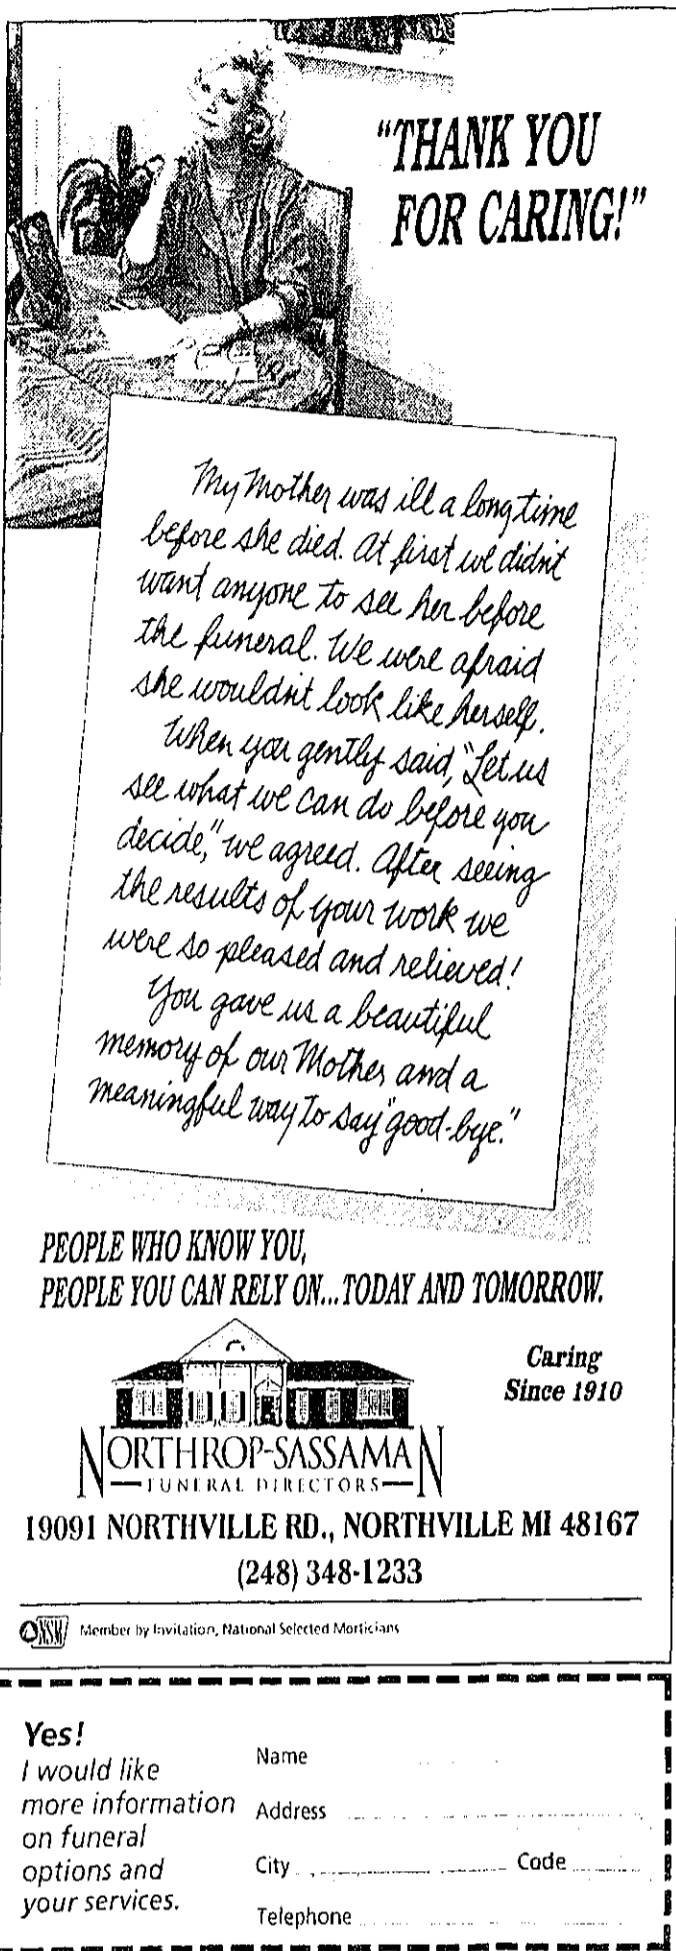 "THANK YOU
FOR CARING!"
My Mother was ill a long time
before she died. At first we didn't
want anyone to see her before
the funeral. We were afraid
she wouldn't look like herself.
When you gently said, "Let us
see what we can do before you
decide," we agreed. After seeing
the results of your work we
were so pleased and relieved!
You gave us a beautiful
memory of our Mother and a
meaningful way to say "good-bye."
PEOPLE WHO KNOW YOU,
PEOPLE YOU CAN RELY ON...TODAY AND TOMORROW.
Caring
Since 1910
NORTHROP-SASSAMAN
FUNERAL DIRECTORS
19091 NORTHVILLE RD., NORTHVILLE MI 48167
(248) 348-1233
NSM Member by Invitation, National Selected Morticians
Yes!
I would like
more information
on funeral
options and
your services.
Name
Address
City Code
Telephone